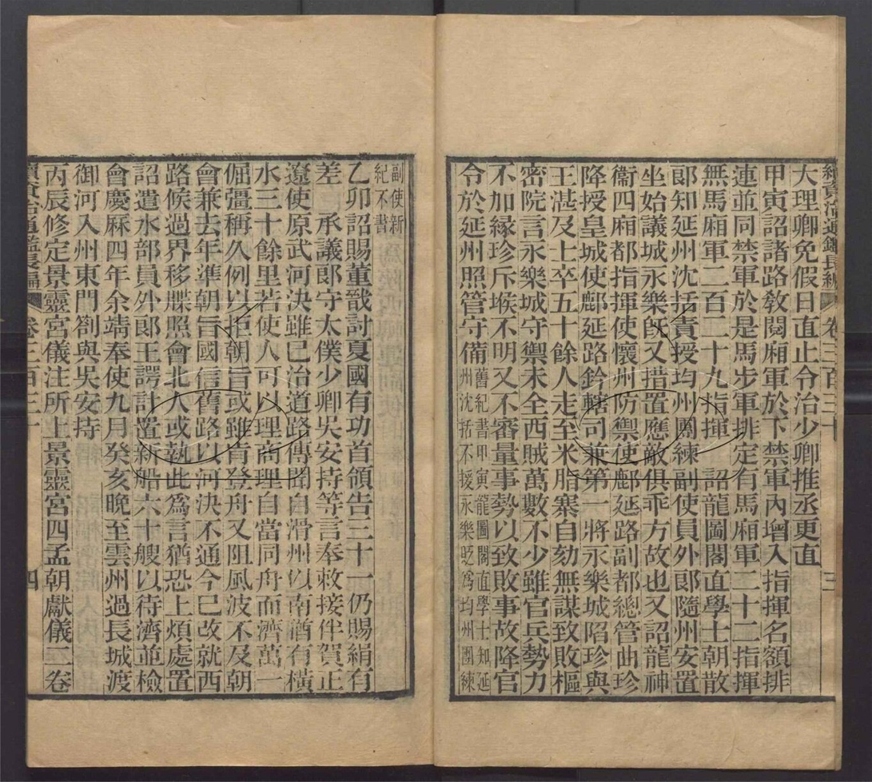 續資治通鑑長編 卷三百三十 三
大理卿免假日直止令治少卿推丞更直
甲寅詔諸路教閱廂軍於下禁軍內增入指揮名額排
連並同禁軍於是馬步軍排定有馬廂軍二十二指揮
無馬廂軍二百二十九指揮 詔龍圖閣直學士朝散
郎知延州沈括責授均州團練副使員外郎隨州安置
坐始議城永樂既又措置應敵俱乖方故也又詔龍神
衞四廂都指揮使懷州防禦使鄜延路副都緫管曲珍
降授皇城使鄜延路鈐轄司兼第一將永樂城陷珍與
王湛及士卒五十餘人走至米脂寨自劾無謀致敗樞
密院言永樂城守禦未全西賊萬數不少雖官兵勢力
不加緣珍斥堠不明又不審量事勢以致敗事故降官
令於延州照管守備
舊紀書甲寅龍圖閣直學士知延
州沈括不援永樂貶爲均州團練
副使新
紀不書
乙卯詔賜董戩討夏國有功首領告三十一仍賜絹有
差 承議郎守太僕少卿吳安持等言奉敕接伴賀正
遼使原武河決雖已治道路傳聞自滑州以南猶有橫
水三十餘里若使人可以理商理自當同舟而濟萬一
倔彊稱久例以拒朝旨或雖肯登舟又阻風波不及朝
會兼去年準朝旨國信舊路以河決不通今已改就西
路候過界移牒照會北人或執此爲言猶恐上煩處置
詔遣水部員外郎王諤計置新船六十艘以待濟並檢
會慶厤四年余靖奉使九月癸亥晚至雲州過長城渡
御河入州東門劄與吳安持
丙辰修定景靈宮儀注所上景靈宮四孟朝獻儀二卷
續資治通鑑長編 卷三百三十 四